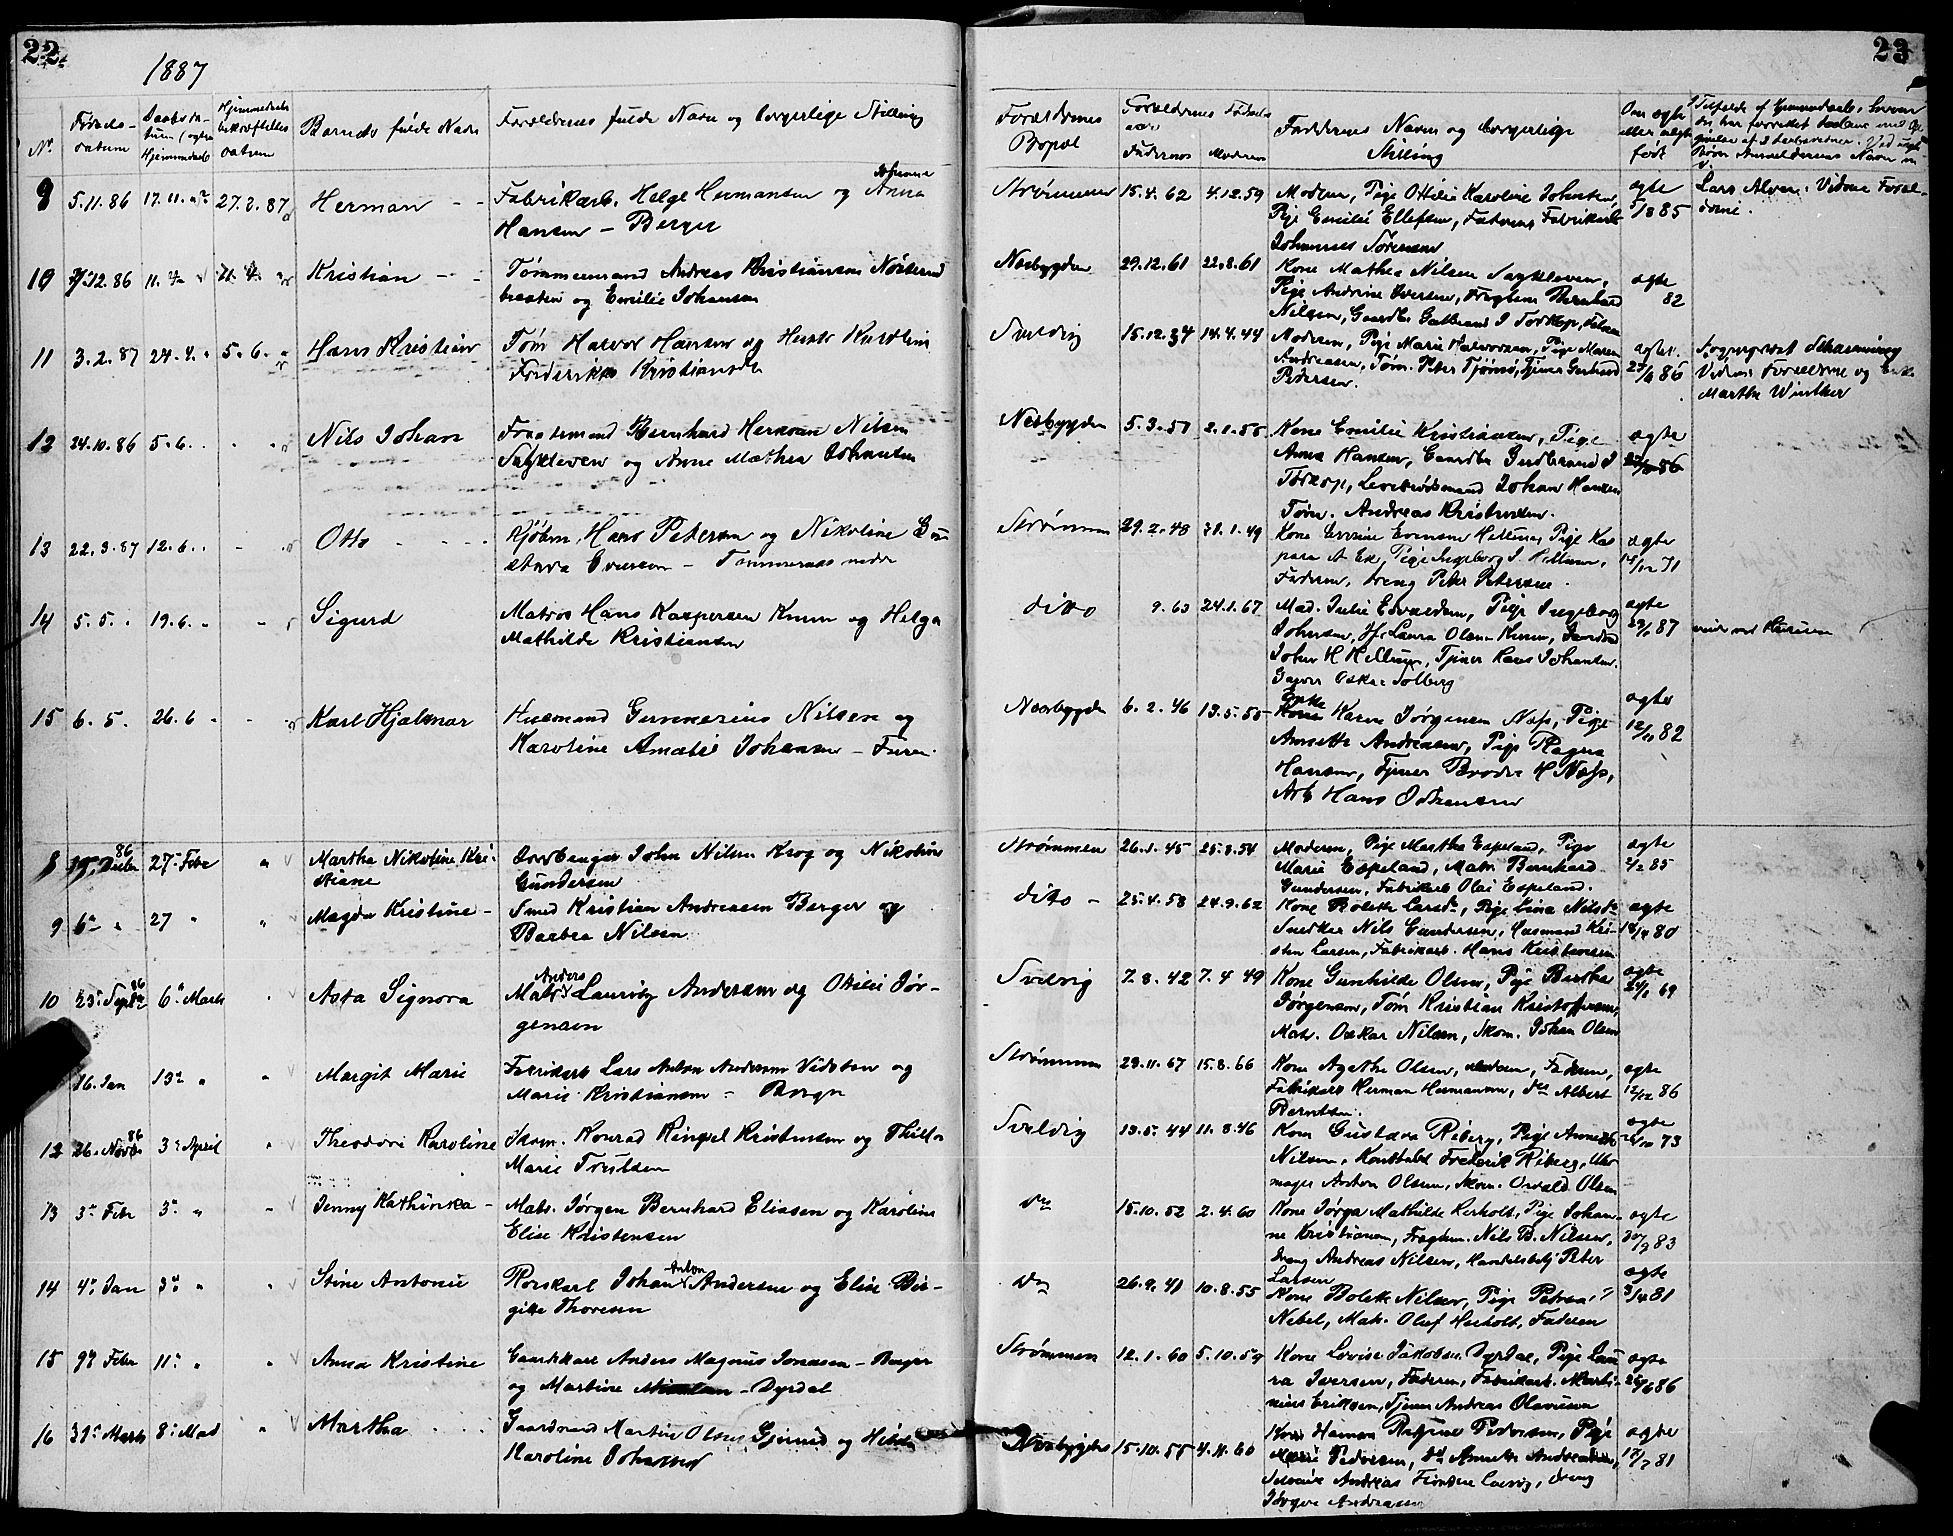 22
1887
23
No
Fødsels-
datum
Barnets fulde Navn
Forældrenes fulde Navn og borgerlige Stilling
Forældrenes
Bopæl
Forældrenes Fødsels-
Faderens Moderens
Faddernes Navn og borgerlige
Stilling
Om ægte
eller uægte
født
9 5.11.86 17.11. 27.3.87 Herman
Fabrikarb. Helge Hermansen og Anna
Hansen - Berger
Strømmen 15.4.62 4.12.59
Moderen, Pige Ottilie Karoline Johnsen,
Pige Emilie Ellefsen, Faderen, Fabrikarb
Johannes Sørensen
ægte
85
Lars Alven. Vidne Foræl-
drene.
10 12.86 11.4 Kristian
Tømmermand Andreas Kristiansen
braaten og Emilie Johansen
Nesbygden 29.12.61 22.8.61
Kone Mathea Nilsen Sagkleven,
Pige Andrine Iversen, Fragtem Bernhard
Nilsen, Gaardbr. Gulbrand I Torkop, Faderen
ægte
82
11 3.2.87 24.4. 5.6. Hans Kristian
Tøm Halvor Hansen og Hentr Karoline
Frederikke Kristiansen
Svelvig 15.12.34 14.4.44
Moderen, Pige Marie Halvorsen, Pige Maren
Andreasen, Tøm. Peter Tjømø, Tjener Gerhard
Pedersen.
ægte.
86
Sogneprest Scharning
Vidne: Forældrene og
Marthe Winther
12 24.10.86 5.6. Nils Johan
Fragtemand Bernhard Herman Nilsen
Sagkleven og Anne Mathea Johansen
Nesbygden 5.3.57 2.1.55
Kone Emilie Kristiansen, Pige
Anna Hansen, Gaardbr Gulbrand I
Torkop, Løvetrødsmand Johan Hansen
Tøm. Andreas Kristiansen.
ægte
13 22.3.87 12.6. Otto
Kjøbm. Hans Petersen og Nikoline Gu-
stava Evensen - Tømmeraas nedre
Strømmen 29.2.48 31.1.49
Kone Evine Evensen Hellum, Pige Kas
para A Ek, Pige Ingeborg I. Hellum,
Faderen, dreng Peter Petersen.
ægte
14/12 71
14 5.5. 19.6. Sigurd
Matros Hans Kaspersen Knem og Helga
Mathilde Kristiansen
ditto 9.63 24.1.67
Mad. Julie Edvardsen, Pige Ingeborg
Johnsen, Jfr Laura Olsen Knem,
John H Hellum, Tjener Hans Johansen.
Gaver Oskar Solberg
ægte
87
15 6.5. 26.6 Karl Hjalmar
Husmand Gunnerius Nilsen og
Karoline Amalie Johansen - Furen.
Nesbygden 6.2.46 13.5.55
Enke
Karen Jørgensen Næss, Pige
Annette Andreasen, Pige Ragna
Hansen, Tjener Brodr. H Næss,
Arb Hans Johansen
ægte
82
8 86 27 Febr Martha Nikoline Kri-
stiane
Opsbenger John Nilsen Krog og Nikoline
Gundersen
Strømmen 26.1.45 25.8.54
Moderen, Pige Martha Espeland, Pige
Marie Espeland, Matr. Bernhard
Gundersen, Fabrikarb Olai Espeland.
ægte
85
9 6 27 Magda Kristine -
Smed Kristian Andreasen Berger og
Barbra Nilsen
ditto - 25.4.58 24.9.62
Kone Bolette Larsdr, Pige Lina Nilsdr
Snedker Nils Gundersen, Husmand Kri-
sten Larsen, Fabrikarb. Hans Kristensen
ægte
80
10 23 Septbr 86 6 Marts Asta Signora
Anders
Matr Lauritz Andersen og Ottilie Jør-
gensen
Svelvig 7.8.42 7.4.49
Kone Gunhilde Olsen, Pige Bertha
Jørgensen, Tøm Kristian Kristoffersen,
Matr. Oskar Nilsen, Skom. Johan Olsen
ægte
69
16. Jan 13 Margit Marie
Fabrikarb Lars Anton Andersen Vidsten og
Marie Kristiansen - Berger
Strømmen 29.11.67 15.8.66
Kone Agathe Olsen, Moderen, Faderen,
Fabrikarb Herman Hermansen, do Albert
Berntsen.
ægte
12/12 86
12 26. Novbr 86 3 April Theodora Karoline
Skom. Konrad Ringvel Kristensen og Thilda
Marie Trulsen
Svelvig 13.5.44 11.8.46
Kone Gustava Riberg, Pige Annette
Nilsen, Frederik Riberg, Uhr
mager Anton Olsen, Skom. Osvald Olsen
ægte
73
13 3 Febr 3 Jenny Kathinka -
Matr. Jørgen Bernhard Eliasen og Karoline
Elise Kristensen
do 15.10.52 2.4.60
Kone Jørga Mathilde Herholt, Pige Johan-
ne Kristiansen, Fragtem. Nils B. Nilsen,
Dreng Andreas Nilsen, Handelsbetj Peter
Larsen
ægte
83
14 4 Jan 3 Stine Antonie
Rorskarl Johan Anton Andersen og Elise Bir-
gitte Thoresen
do 26.9.41 10.8.55
Kone Bolette Nilsen, Pige Petrea
Nebel, Matr. Oluf Herholt, Faderen
ægte
81
15 9 Febr 11 Anna Kristine
Gaardskarl Anders Magnus Jonassen - Berger
og Martine - Dyrdal
Strømmen 12.1.60 5.10.59
Kone Lovise Jakobsen Dyrdal, Pige Lau
ra Iversen, Faderen, Fabrikarb. Marti-
nius Eriksen, Tjener Andreas Olavesen
ægte
86
16 31 Marts 8 Mad Martha
Gaardmand Martin Olsen Gjerud og Hilda
Karoline Johansen
Nesbygden 15.10.55 4.11.60
Kone Hanna Regine Pedersen, Pige
Marie Pedersen, do Annette Andreassen,
Andreas, dreng
Jørgen Andreasen
ægte
81